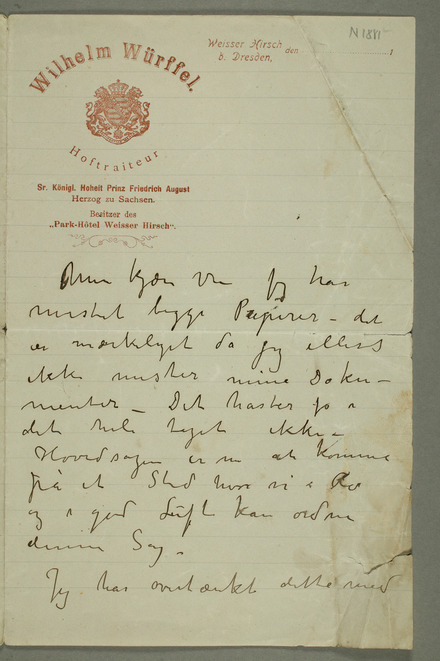 N 1811
Weisser Hirsch
b. Dresden, den 1
Wilhelm Würffel.
Hoftraiteur
Sr. Königl. Hoheit Prinz Friedrich August
Herzog zu Sachsen.
Besitzer des
„Park-Hôtel Weisser Hirsch“.
Min kjære Ven Jeg har
mistet begge Papirer – det
er mærkeligt da jeg ellers
ikke mister mine Doku–
menter – Det haster jo i
det hele taget ikke –
Hovedsagen er nu at komme
på et Sted hvor vi i Ro
og i god Luft kan ordne
denne Sag.
Jeg har overtænkt dette med